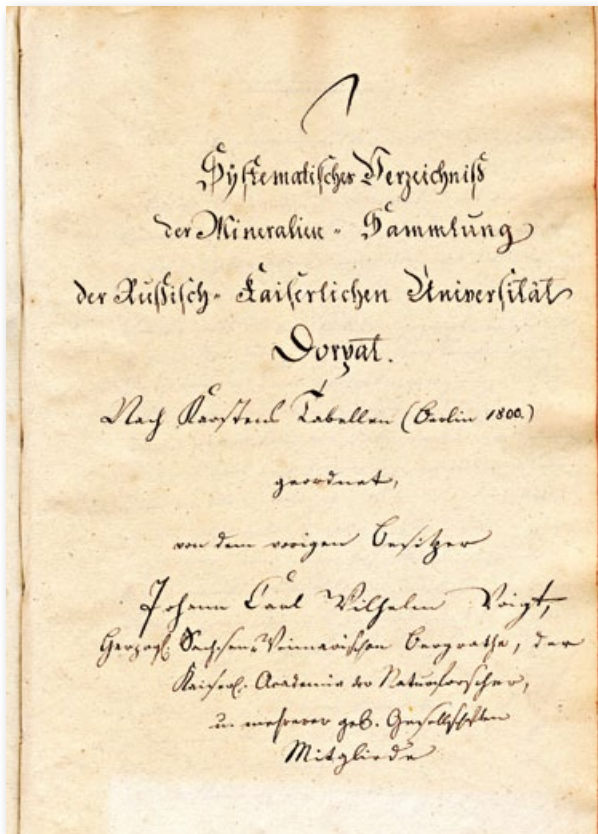 Systematisches Verzeichniß
der Mineralien - Sammlung
der Rußisch - Kaiserlichen Universität
Dorpat.
Nach Karstens Tabellen (Berlin 1800.)
geordnet,
von dem vorigen Besitzer
Johann Carl Wilhelm Voigt,
Herzogl. Sachsen Weimarischen Bergrathe, der
Kaiserl. Academie der Naturforscher,
u. mehrerer gel. Gesellschaften
Mitgliede